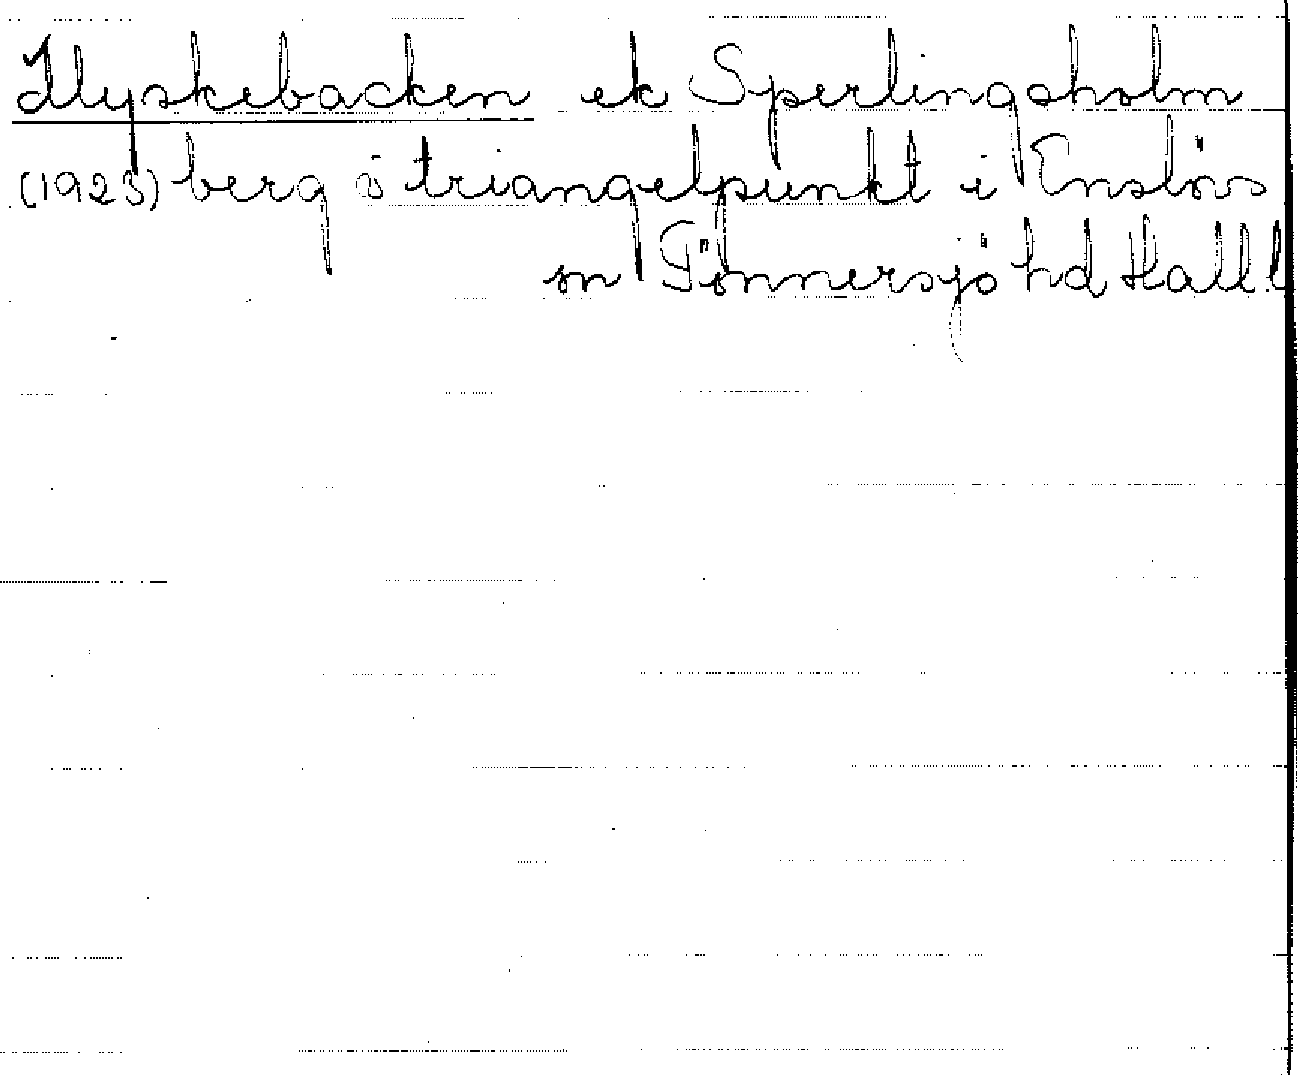 Ilyskebacken ek Sperlingsholm
(1923) berg o triangelpunkt i Enslövs
sn Tönnersjö hd Hall.l